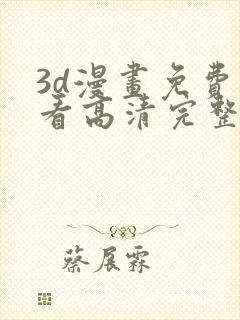 3d漫畫免費
看高清完整
蔡展霖